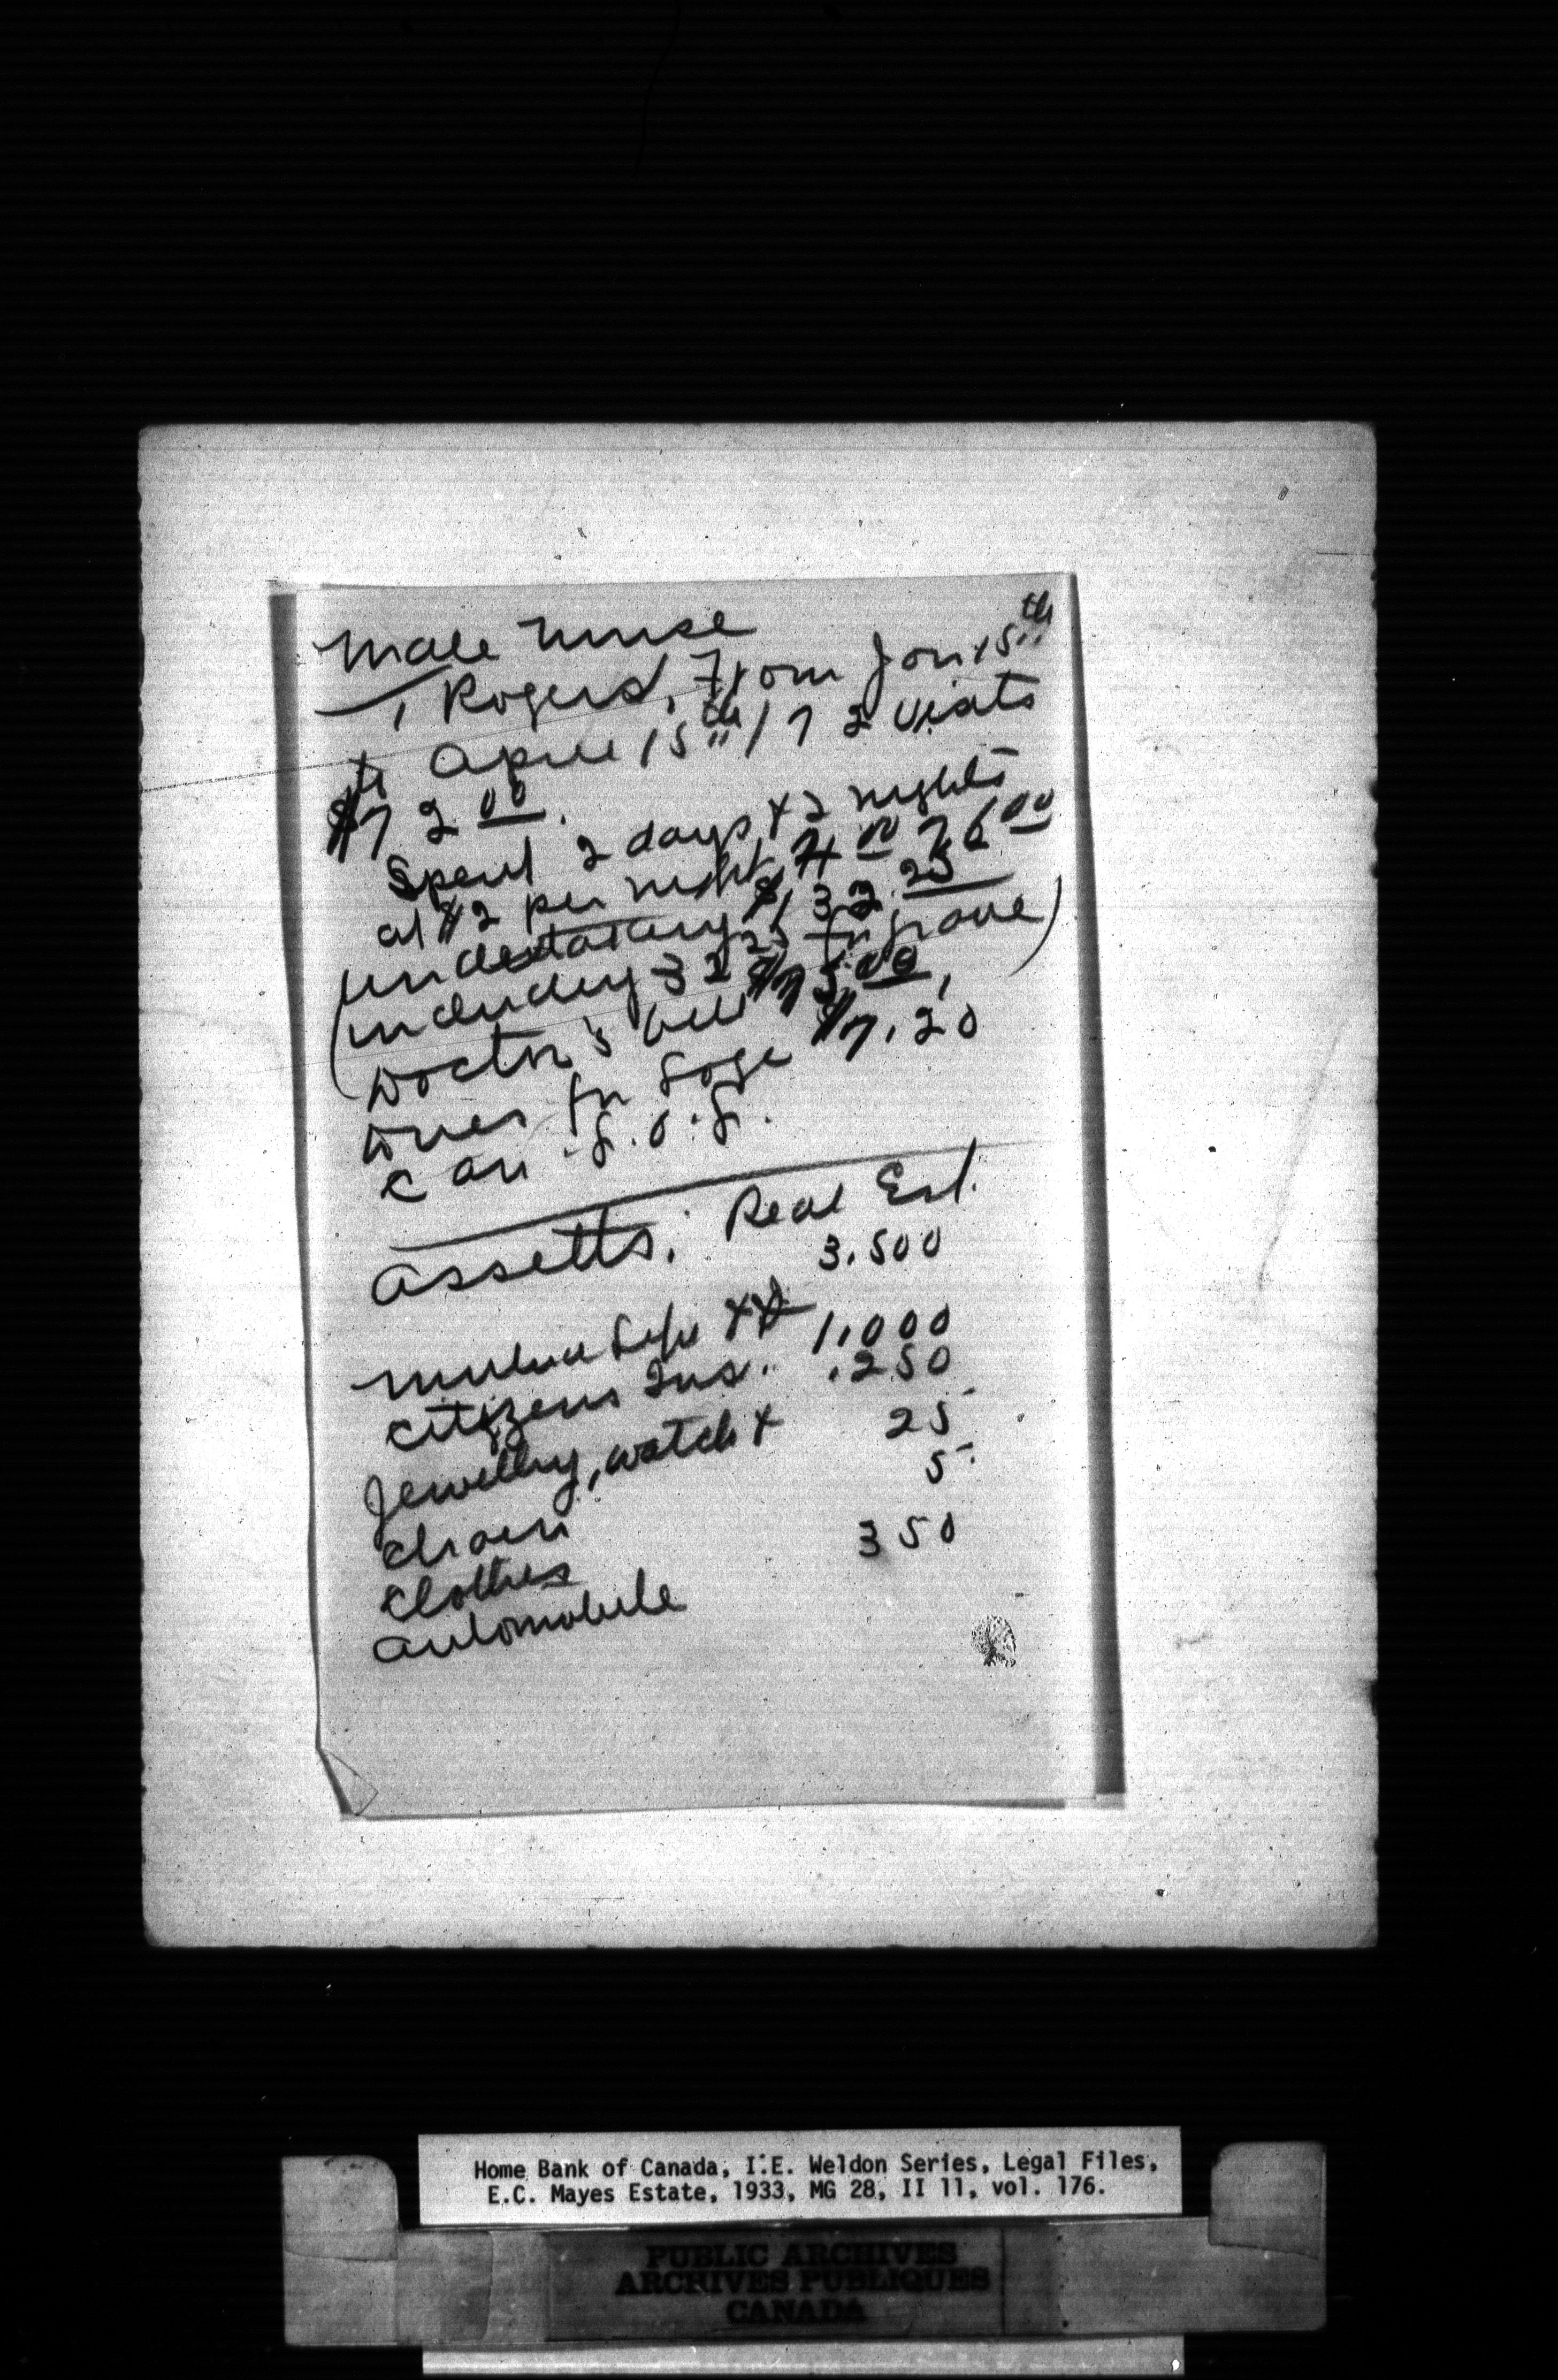 Male Nurse
Rogers, From Jan 15th
to April 15th / 72 Visits
$72 00.
Spent 2 days + 2 nights
at $2 per night, 4 00 76 00
(Undertaking $132.25
(including 32 25 for grave)
Doctor's bill $75.00,
Dues for Loge $7.20
Can. O.
Assetts. Real Est.
3.500
Mutual Life 1,000
Citizens Ins. .250
Jewellry, watch + 25
chain 5
Clothes
automobile 350
Home Bank of Canada, I.E. Weldon Series, Legal Files,
E.C. Mayes Estate, 1933, MG 28, II 11, vol. 176.
PUBLIC ARCHIVES
ARCHIVES PUBLIQUES
CANADA